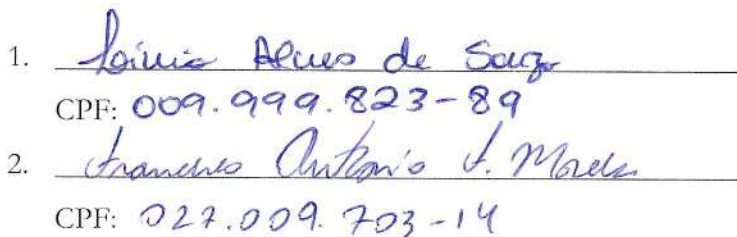 1. Alves de Souza
CPF: 009.999.823-89
2. Francisco Antonio
CPF: 027.009.703-14